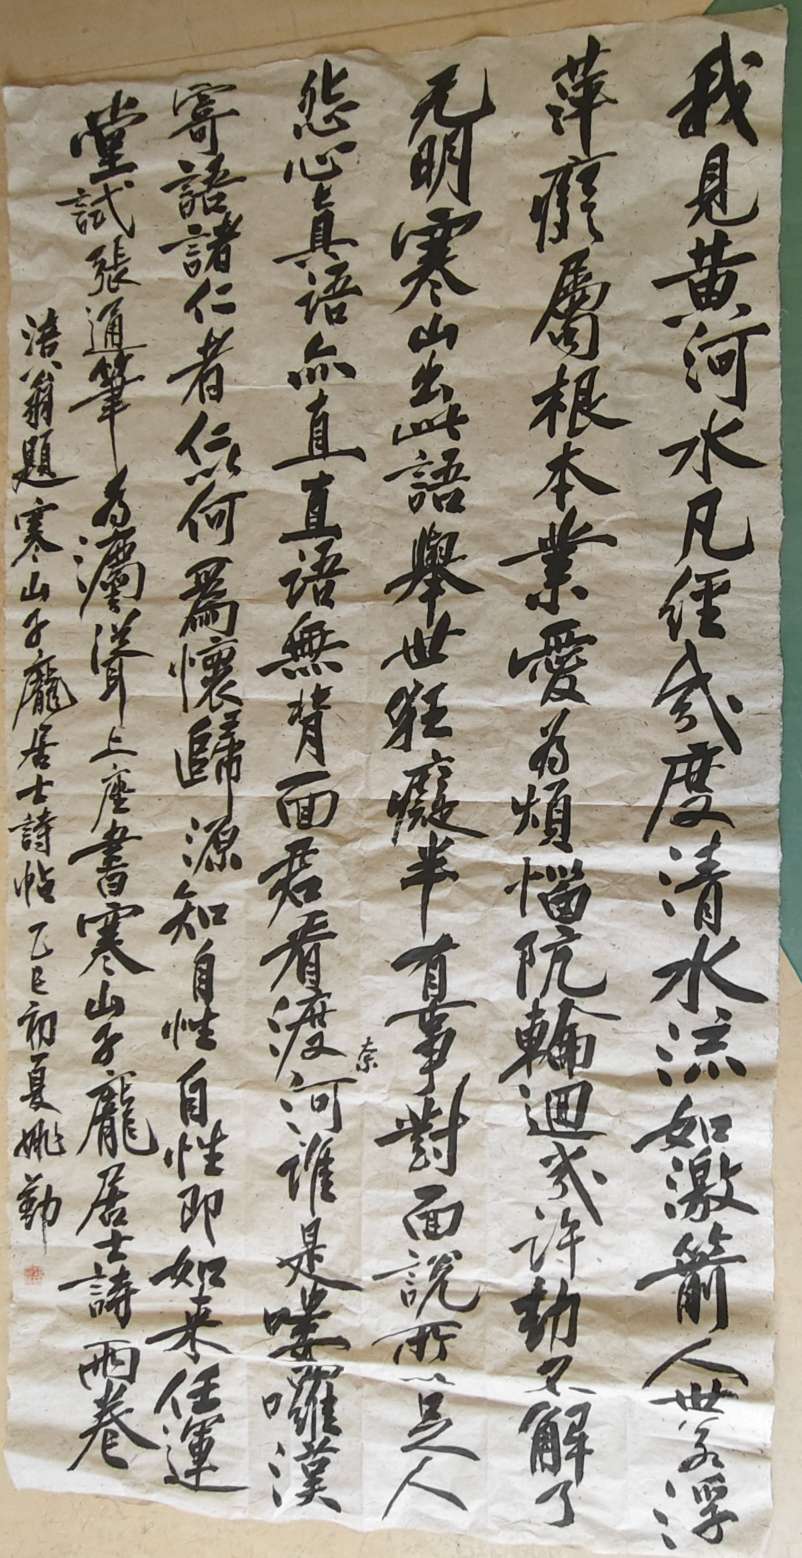 我見黃河水凡經幾度清水流如激箭人世若浮
萍癡屬根本業愛為煩惱阬輪迴幾許劫不解了
无明寒山出此語舉世狂癡半有事對面說所以足人
怨心真語亦直直語無背面君看渡奈河誰是嘍囉漢
寄語諸仁者仁以何為懷歸源知自性自性即如来任運
堂試張通筆為灋聳上座書寒山子龐居士詩兩卷
涪翁題寒山子龐居士詩帖乙巳初夏姚勤